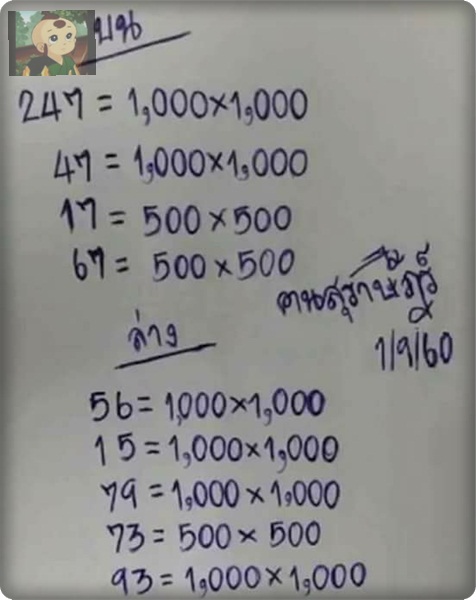 บน
247 = 1,000×1,000
47 = 1,000×1,000
17 = 500×500
67 = 500×500
คนสุราษฎร์
1/9/60
ล่าง
56 = 1,000×1,000
15 = 1,000×1,000
79 = 1,000×1,000
73 = 500×500
93 = 1,000×1,000